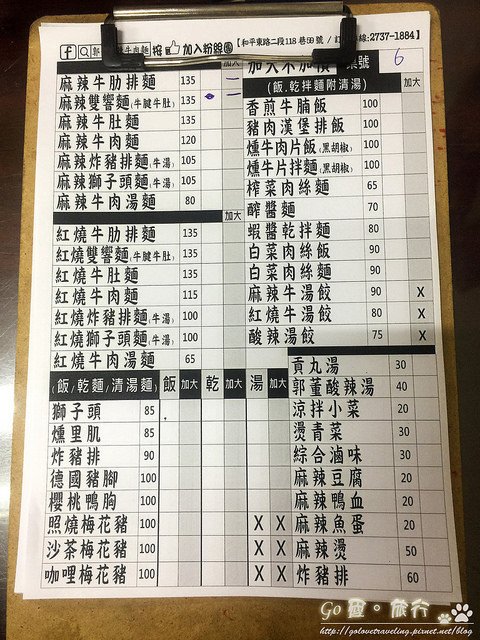 牛肉麵 按 加入粉絲團 【和平東路二段118巷59號 / 訂 線:2737-1884】
加大
加大不加價 桌號 6
麻辣牛肋排麵 135
麻辣雙響麵(牛腱牛肚) 135
麻辣牛肚麵 135
麻辣牛肉麵 120
麻辣炸豬排麵(牛湯) 105
麻辣獅子頭麵(牛湯) 105
麻辣牛肉湯麵 80
加大
紅燒牛肋排麵 135
紅燒雙響麵(牛腱牛肚) 135
紅燒牛肚麵 135
紅燒牛肉麵 115
紅燒炸豬排麵(牛湯) 100
紅燒獅子頭麵(牛湯) 100
紅燒牛肉湯麵 65
(飯,乾拌麵附清湯) 加大
香煎牛腩飯 100
豬肉漢堡排飯 100
燻牛肉片飯(黑胡椒) 100
燻牛片拌麵(黑胡椒) 100
榨菜肉絲麵 65
醡醬麵 70
蝦醬乾拌麵 80
白菜肉絲飯 90
白菜肉絲麵 90
麻辣牛湯餃 90 X
紅燒牛湯餃 80 X
酸辣湯餃 75 X
(飯/乾麵/清湯麵) 飯 加大 乾 加大 湯 加大
獅子頭 85
燻里肌 85
炸豬排 90
德國豬腳 100
櫻桃鴨胸 100
照燒梅花豬 100 X X
沙茶梅花豬 100 X X
咖哩梅花豬 100 X X
貢丸湯 30
郭董酸辣湯 40
涼拌小菜 20
燙青菜 30
綜合滷味 30
麻辣豆腐 20
麻辣鴨血 20
麻辣魚蛋 20
麻辣燙 50
炸豬排 60
Go 靈。旅行
http://golovetraveling.pixnet.net/blog